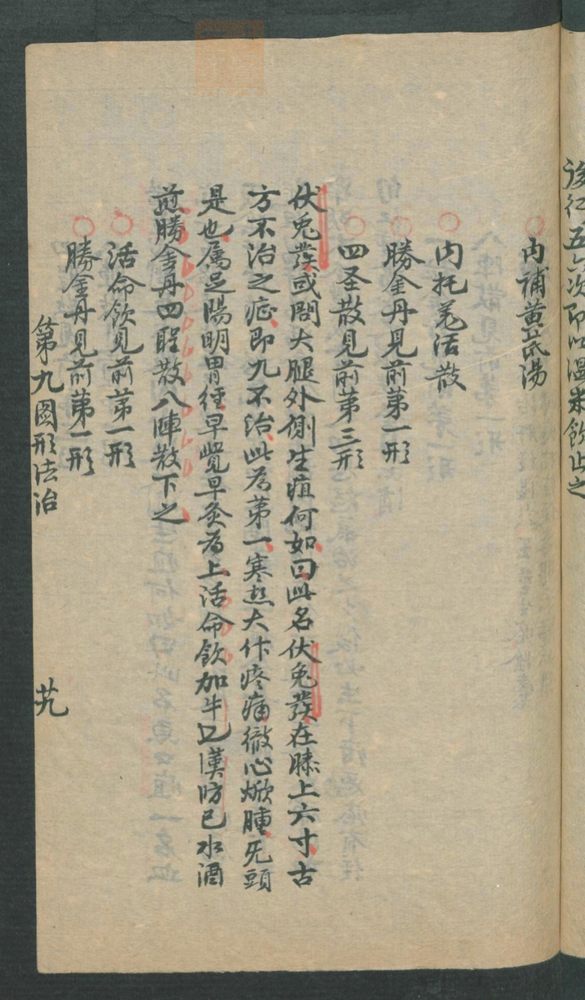 後行五六次即以溫米飲止之
○內補黃芪湯
○內托羗活散
○勝金丹見前苐一形
○四圣散見前苐三形
伏兔發或問大腿外側生疽何如曰此名伏兔發在膝上六寸古
方不治之症即九不治此為苐一寒熱大作疼痛徹心焮腫旡頭
是也屬足陽明胃徑早覺早灸為上活命飲加牛七漢防已水酒
煎勝金丹四聖散八陣散下之
○活命飲見前苐一形
○勝金丹見前苐一形
第九圖形法治